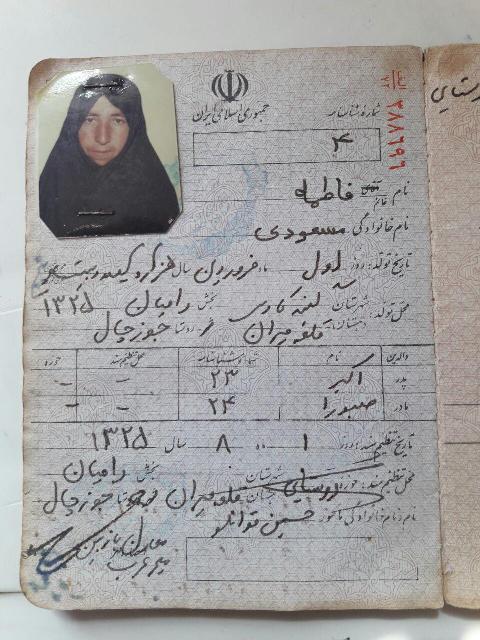 جمهوری اسلامی ایران
شماره شناسنامه
۴
نام آقای خانم فاطمه
نام خانوادگی مسعودی
تاریخ تولد: روز اول ماه فروردین سال هزار و سیصد و بیست و
۱۳۲۵
محل تولد: شهرستان بخش رامیان
دهستان: قلعه میران روستا جوزچال
والدین نام شماره شناسنامه محل تنظیم سند حوزه
پدر اکبر ۲۳ - -
مادر صبورا ۲۴ - -
تاریخ تنظیم سند: روز ۱ ماه ۸ سال ۱۳۲۵
محل تنظیم سند: حوزه شهرستان بخش رامیان
روستایی دهستان قلعه میران جوزچال
نام و نام خانوادگی مامور: حسین